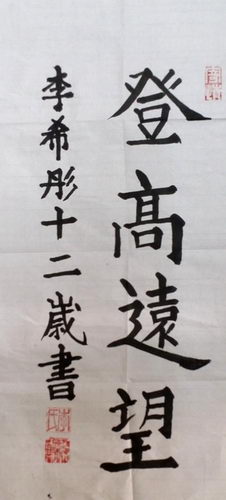 登高遠望
李希彤十二歲書